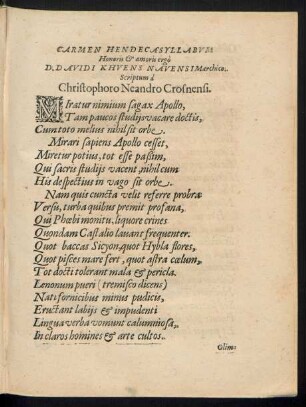 CARMEN HENDECASYLLABUM
Honoris & amoris ergò
D. DAVIDI KHUENS NAVENSI Marchico.
Scriptum à
Christophoro Neandro Crosnensi.
Miratur nimium sagax Apollo,
Tam paucos studijs vacare doctis,
Cum toto melius nihil sit orbe.
Mirari sapiens Apollo cesset,
Miretur potius, tot esse paßim,
Qui sacris studijs vacent, nihil cum
His despectius in vago sit orbe.
Nam quis cuncta velit referre probra
Versu, turba quibus premit profana,
Qui Phœbi monitu, liquore crines
Quondam Castalio lavant frequenter.
Quot baccas Sicyon, quot Hybla flores,
Quot pisces mare fert, quot astra cœlum,
Tot docti tolerant mala & pericla.
Lenonum pueri (tremisco dicens)
Nati fornicibus minus pudicis,
Eructant labijs & impudenti
Lingua verba vomunt calumniosa,
In claros homines & arte cultos.
Olim: